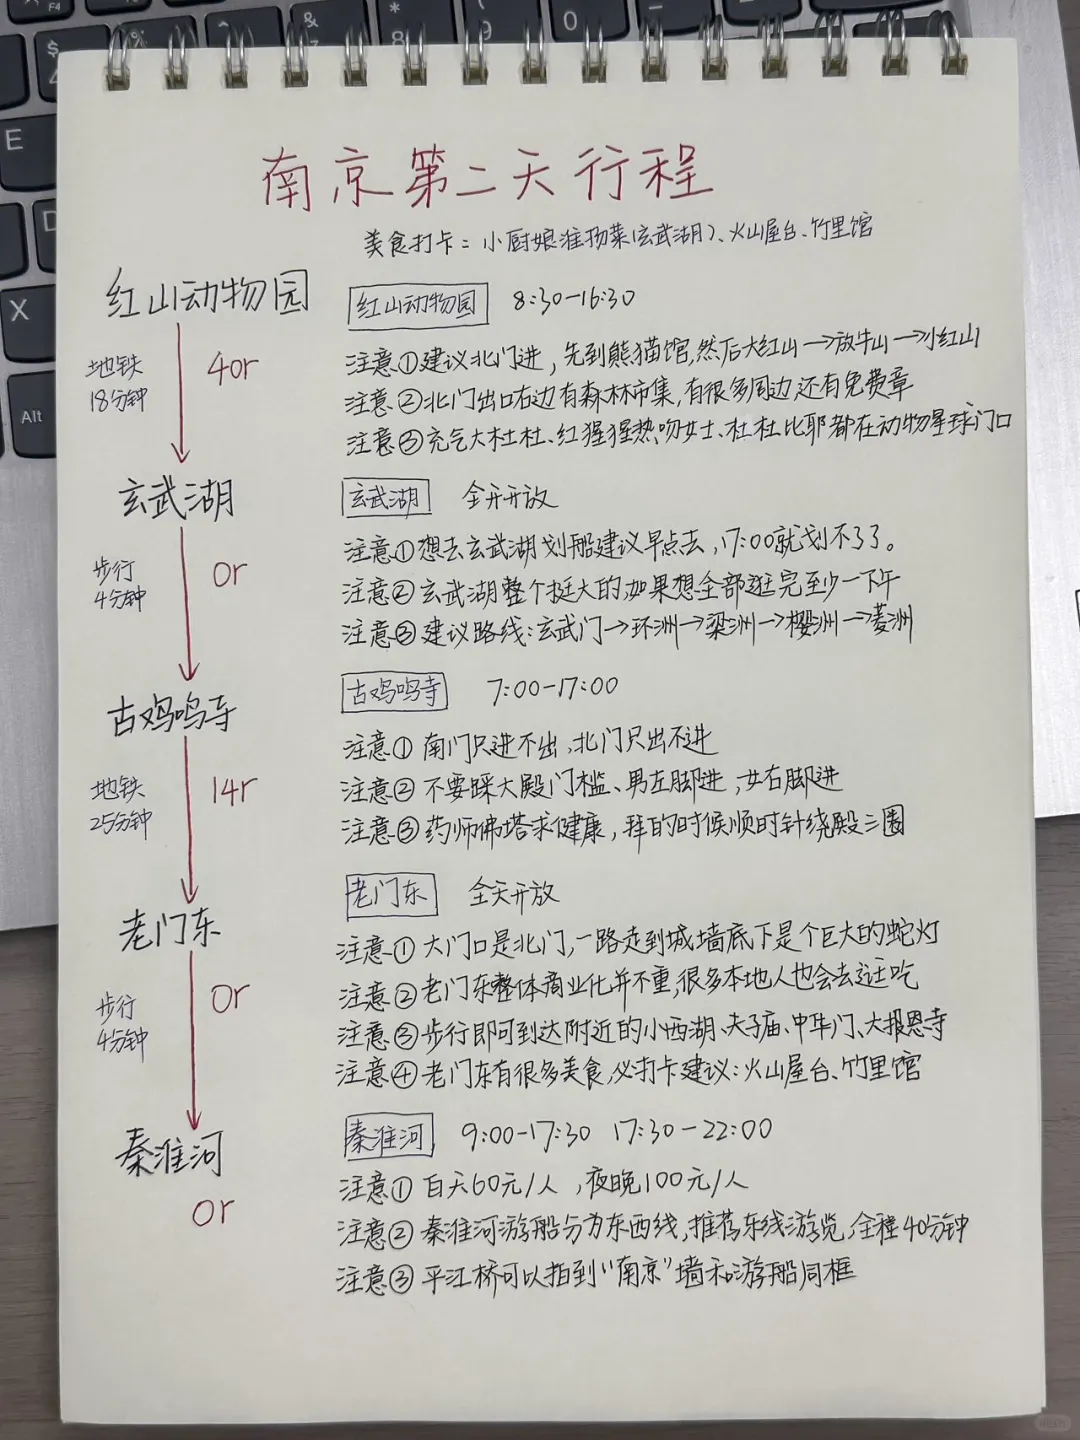 南京第二天行程
美食打卡：小厨娘淮扬菜(玄武湖)、火山屋台、竹里馆
红山动物园
地铁
18分钟
40r
玄武湖
步行
4分钟
0r
古鸡鸣寺
地铁
25分钟
14r
老门东
步行
4分钟
0r
秦淮河
0r
红山动物园 8:30-16:30
注意①建议北门进，先到熊猫馆,然后大红山→放牛山→小红山
注意②北门出口右边有森林市集,有很多周边还有免费章
注意③充气大杜杜、红猩猩热吻女士、杜杜比耶都在动物星球门口
玄武湖 全天开放
注意①想去玄武湖划船建议早点去，17:00就划不了了。
注意②玄武湖整个挺大的,如果想全部逛完至少一下午
注意③建议路线:玄武门→环洲→梁洲→樱洲→菱洲
古鸡鸣寺 7:00-17:00
注意①南门只进不出,北门只出不进
注意②不要踩大殿门槛、男左脚进，女右脚进
注意③药师佛塔求健康，拜的时候顺时针绕殿三圈
老门东 全天开放
注意①大门口是北门,一路走到城墙底下是个巨大的蛇灯
注意②老门东整体商业化并不重,很多本地人也会去逛吃
注意③步行即可到达附近的小西湖、夫子庙、中华门、大报恩寺
注意④老门东有很多美食,必打卡建议:火山屋台、竹里馆
秦淮河 9:00-17:30 17:30-22:00
注意①白天60元/人，夜晚100元/人
注意②秦淮河游船分为东西线,推荐东线游览,全程40分钟
注意③平江桥可以拍到"南京"墙和游船同框